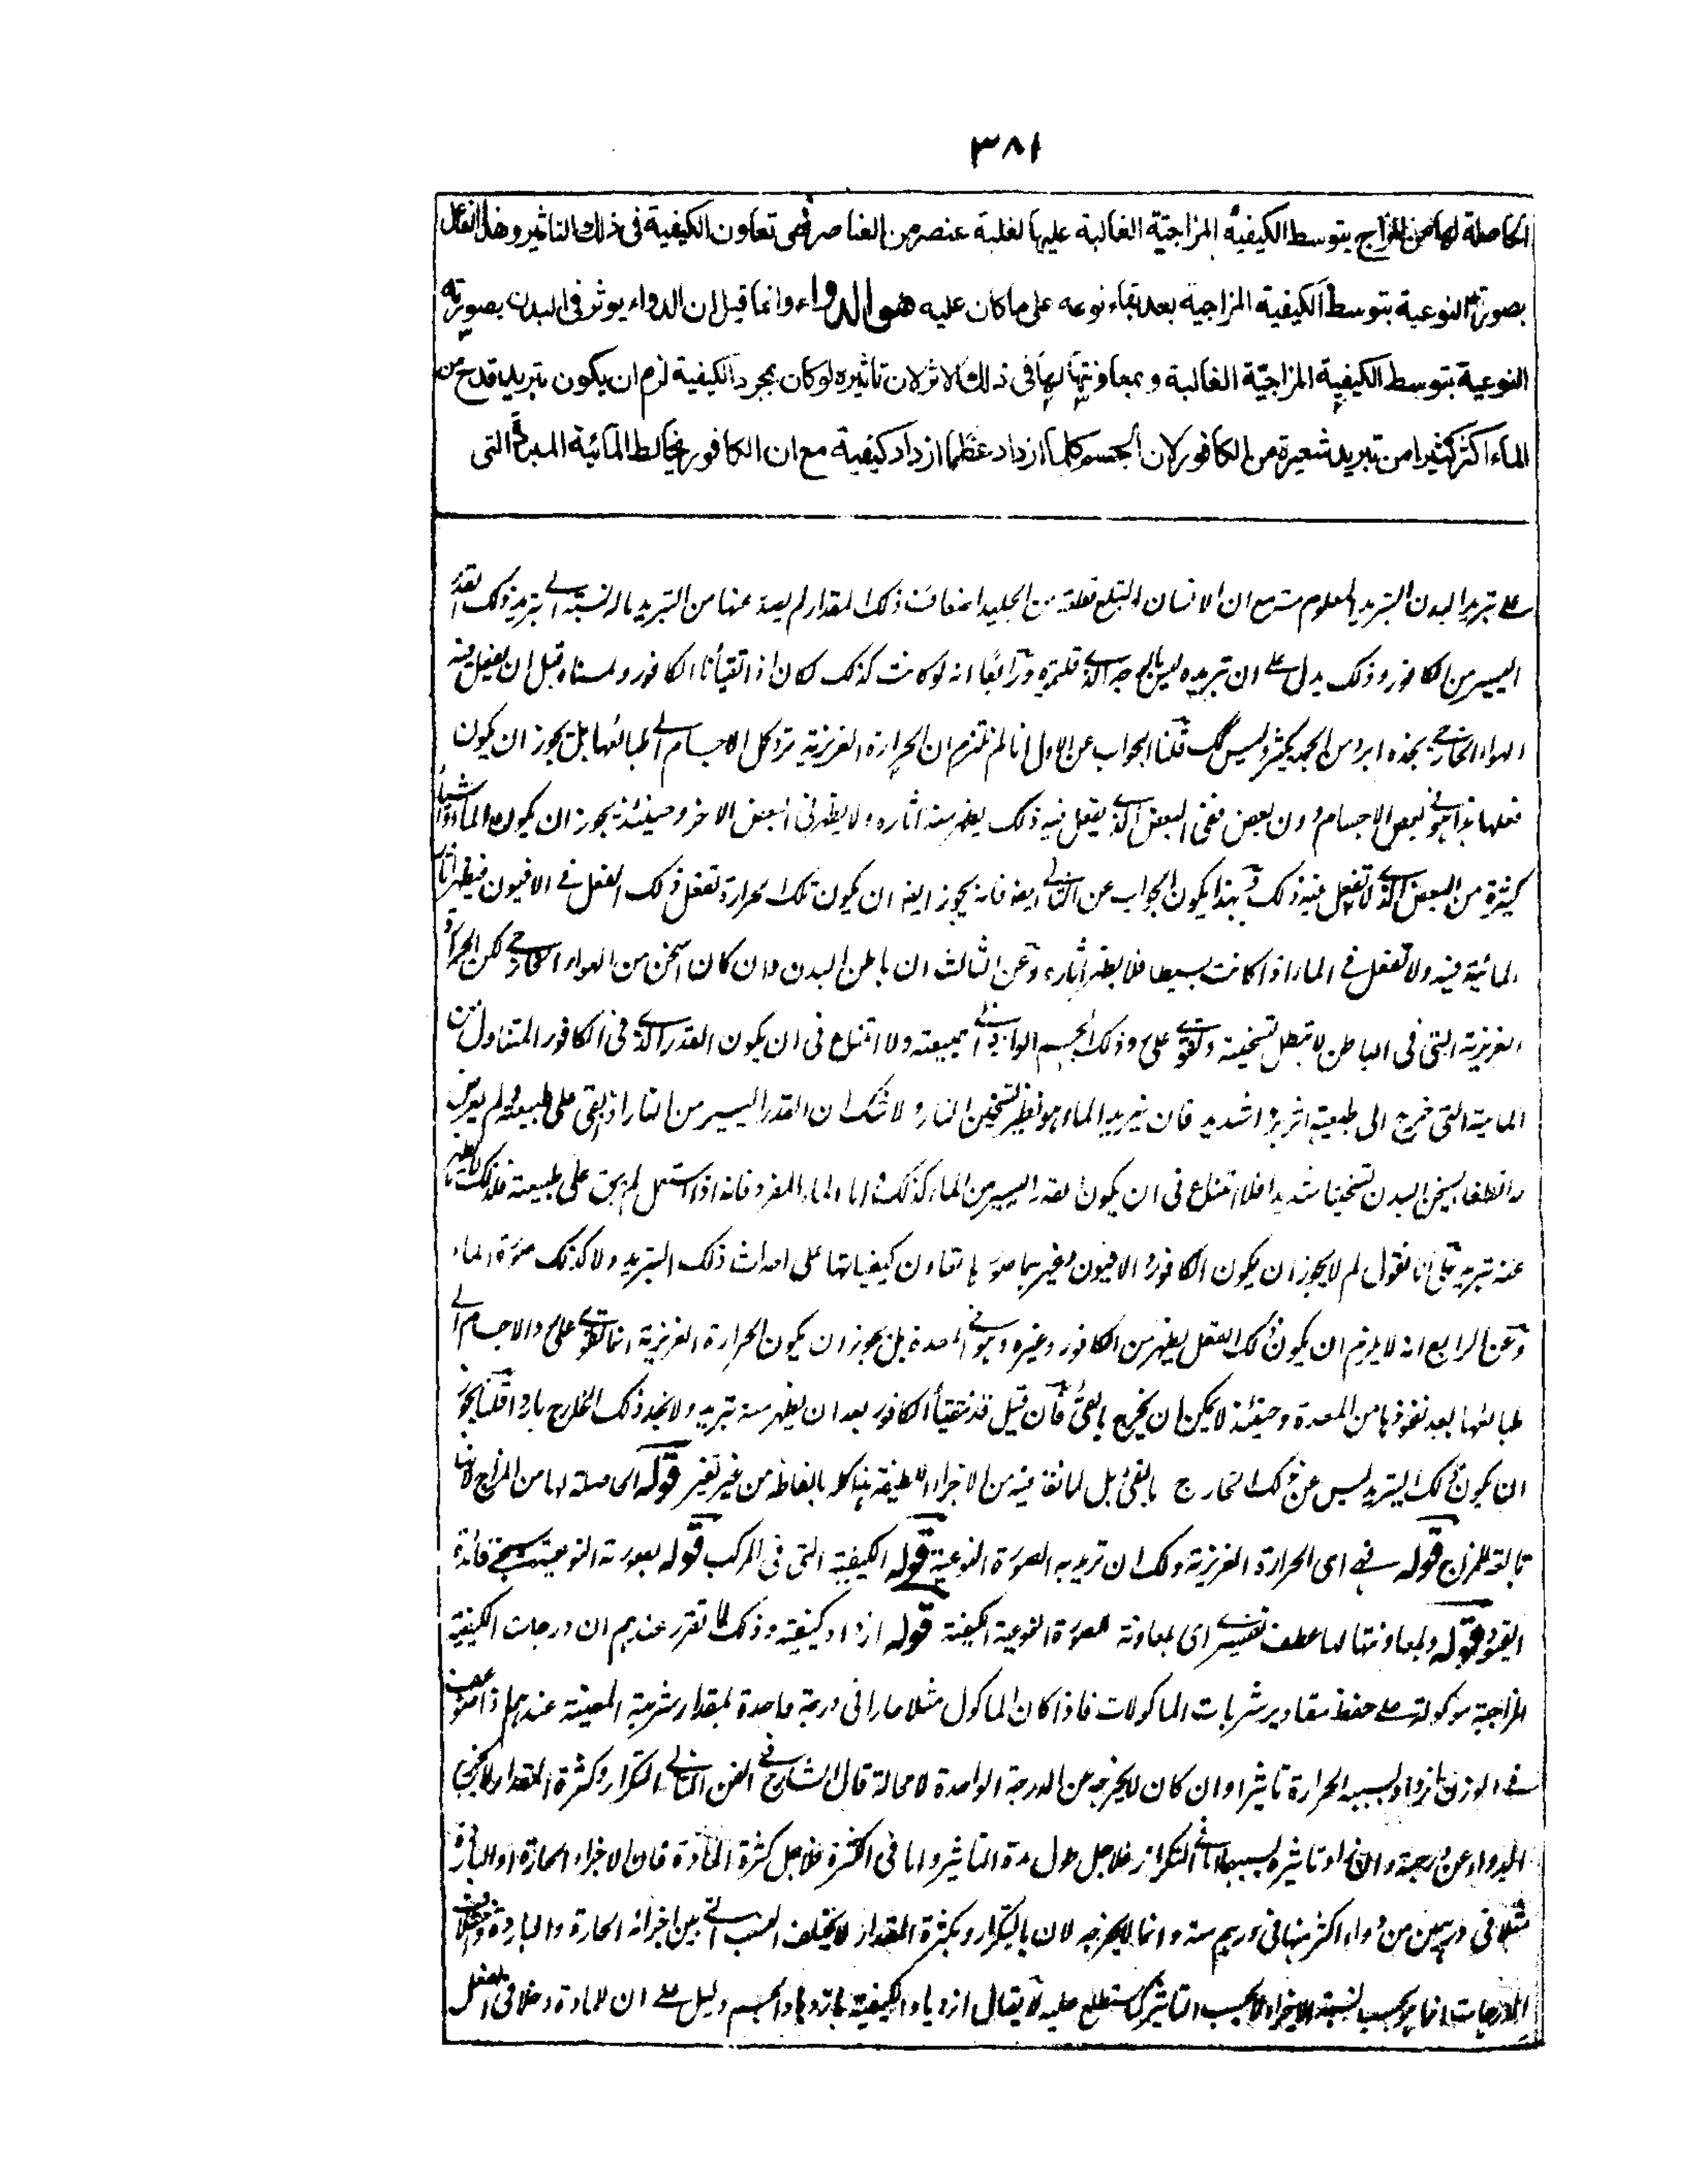 ٣٨١
الحاصلة لها من المزاج بتوسط الكيفية المزاجية الغالبة عليها لغلبة عنصر من العناصر فهى تعاون الكيفية فى ذلك التاثير وهذا الفعل
بصورته النوعية بتوسط الكيفية المزاجية بعد بقاء نوعه على ما كان عليه هو الدواء وانما قيل ان الدواء يوثر فى البدن بصورته
النوعية بتوسط الكيفية المزاجية الغالبة وبمعاونتها لها فى ذلك الاثر لان تاثيره لو كان بمجرد الكيفية لزم ان يكون تبريد قدح من
الماء اكثر كثيرا من تبريد شعيرة من الكافور لان الجسم كلما ازداد عظما ازداد كيفية مع ان الكافور يخالط المائية المبردة التى
على تبريد البدن التبريد المعلوم منه مع ان الانسان لو ابتلع قطعة من الجليد اضعاف ذلك المقدار لم يحدث عنها من التبريد ماله نسبة الى تبريد ذلك القدر
اليسير من الكافور وذلك يدل على ان تبريده ليس بالوجه الذى قلتموه ورابعا انه لو كانت كذلك لكان اذا تقيأنا الكافور ولمسناه قبل ان يفعل فيه
الهواء الخارجى نجده ابرد من الجمد بكثير وليس كك قلنا الجواب عن الاول انا لم نلتزم ان الحرارة الغريزية ترد كل الاجسام الى طبائعها بل يجوز ان يكون
فعلها هذا هو فى بعض الاجسام دون بعض ففى البعض الذى يفعل فيه ذلك يظهر منه اثاره ولا يظهر فى البعض الاخر وحينئذ يجوز ان يكون الماء واشياء
كثيرة من البعض الذى لا تفعل فيه ذلك وبهذا يكون الجواب عن الثانى ايضا فانه يجوز ايضا ان يكون تلك الحرارة تفعل ذلك الفعل فى الافيون فيظهر اثار
المائية فيه ولا تفعل فى الماء اذا كانت بسيطا فلا يظهر اثاره وعن الثالث ان باطن البدن وان كان اسخن من الهواء الخارجى لكن الحرارة
الغريزية التى فى الباطن لا تبطل تسخينه وتقوى على رد ذلك الجسم الوارد الى طبيعته ولا امتناع فى ان يكون القدر الذى فى الكافور المتناول من
المائية التى ترجع الى طبيعته اثر برد اشديد فان تبريد الماء هو نظير تسخين النار ولا شك ان القدر اليسير من النار اذا بقى على طبيعته ولم يعرض
له انطفاء يسخن البدن تسخينا شديدا فلا امتناع فى ان يكون القدر اليسير من الماء كذلك واما الماء المفرد فانه اذا استعمل لم يبق على طبيعته فلذلك لا يظهر
عنه تبريد على انا نقول لم لا يجوز ان يكون الكافور والافيون وغيرهما صورها تعاون كيفياتها على احداث ذلك التبريد ولا كذلك صورة الماء
وعن الرابع انه لا يلزم ان يكون ذلك الفعل يظهر من الكافور وغيره وهو فى المعدة بل يجوز ان يكون الحرارة الغريزية انما تقوى على رد الاجسام الى
طبائعها بعد نفوذها من المعدة وحينئذ لا يمكن ان يخرج بالقئ فان قيل قد نتقيأ الكافور بعد ان يظهر منه تبريد ولا نجد ذلك الخارج باردا قلنا يجوز
ان يكون ذلك التبريد ليس عن ذلك الخارج بالقئ بل لما نفذ فيه من الاجزاء اللطيفة هنا كله بالفاظه من غير تغير قوله الحاصلة لها من المزاج لانها
تابعة للمزاج قوله فهى اى الحرارة الغريزية ولك ان تريد به الصورة النوعية قوله الكيفية التى فى المركب قوله بصورته النوعية سيجئ فائدة
القيود قوله وبمعاونتها لها عطف تفسيرى اى بمعاونة الصورة النوعية الكيفية قوله ازداد كيفية وذلك لما تقرر عندهم ان درجات الكيفية
المزاجية موكولة على حفظ مقادير شربات الماكولات فاذا كان الماكول مثلا حارا فى درجة واحدة بمقدار شربته المعينة عندهم اذا ضوعف
فى الوزن ازداد بسببه الحرارة تاثيرا وان كان لا يخرجه عن الدرجة الواحدة لا محالة قال الشارح فى الفن الثانى التكرار وكثرة المقدار لا يخرج
الدواء عن درجته وان زاد تاثيره بسببهما اما فى التكرار فلاجل طول مدة التاثير واما فى الكثرة فلاجل كثرة المادة فان الاجزاء الحارة او الباردة
مثلا فى درهمين من دواء اكثر منها فى درهم منه وانما لا يخرجه لان بالتكرار وبكثرة المقدار لا يختلف النسب التى بين اجزائه الحارة والباردة
الدرجات انما هو بحسب نسبة الاجزاء لا بحسب التاثير كما ستطلع عليه لا يقال ازدياد الكيفية بازدياد الجسم دليل على ان للمادة دخلا فى الفعل